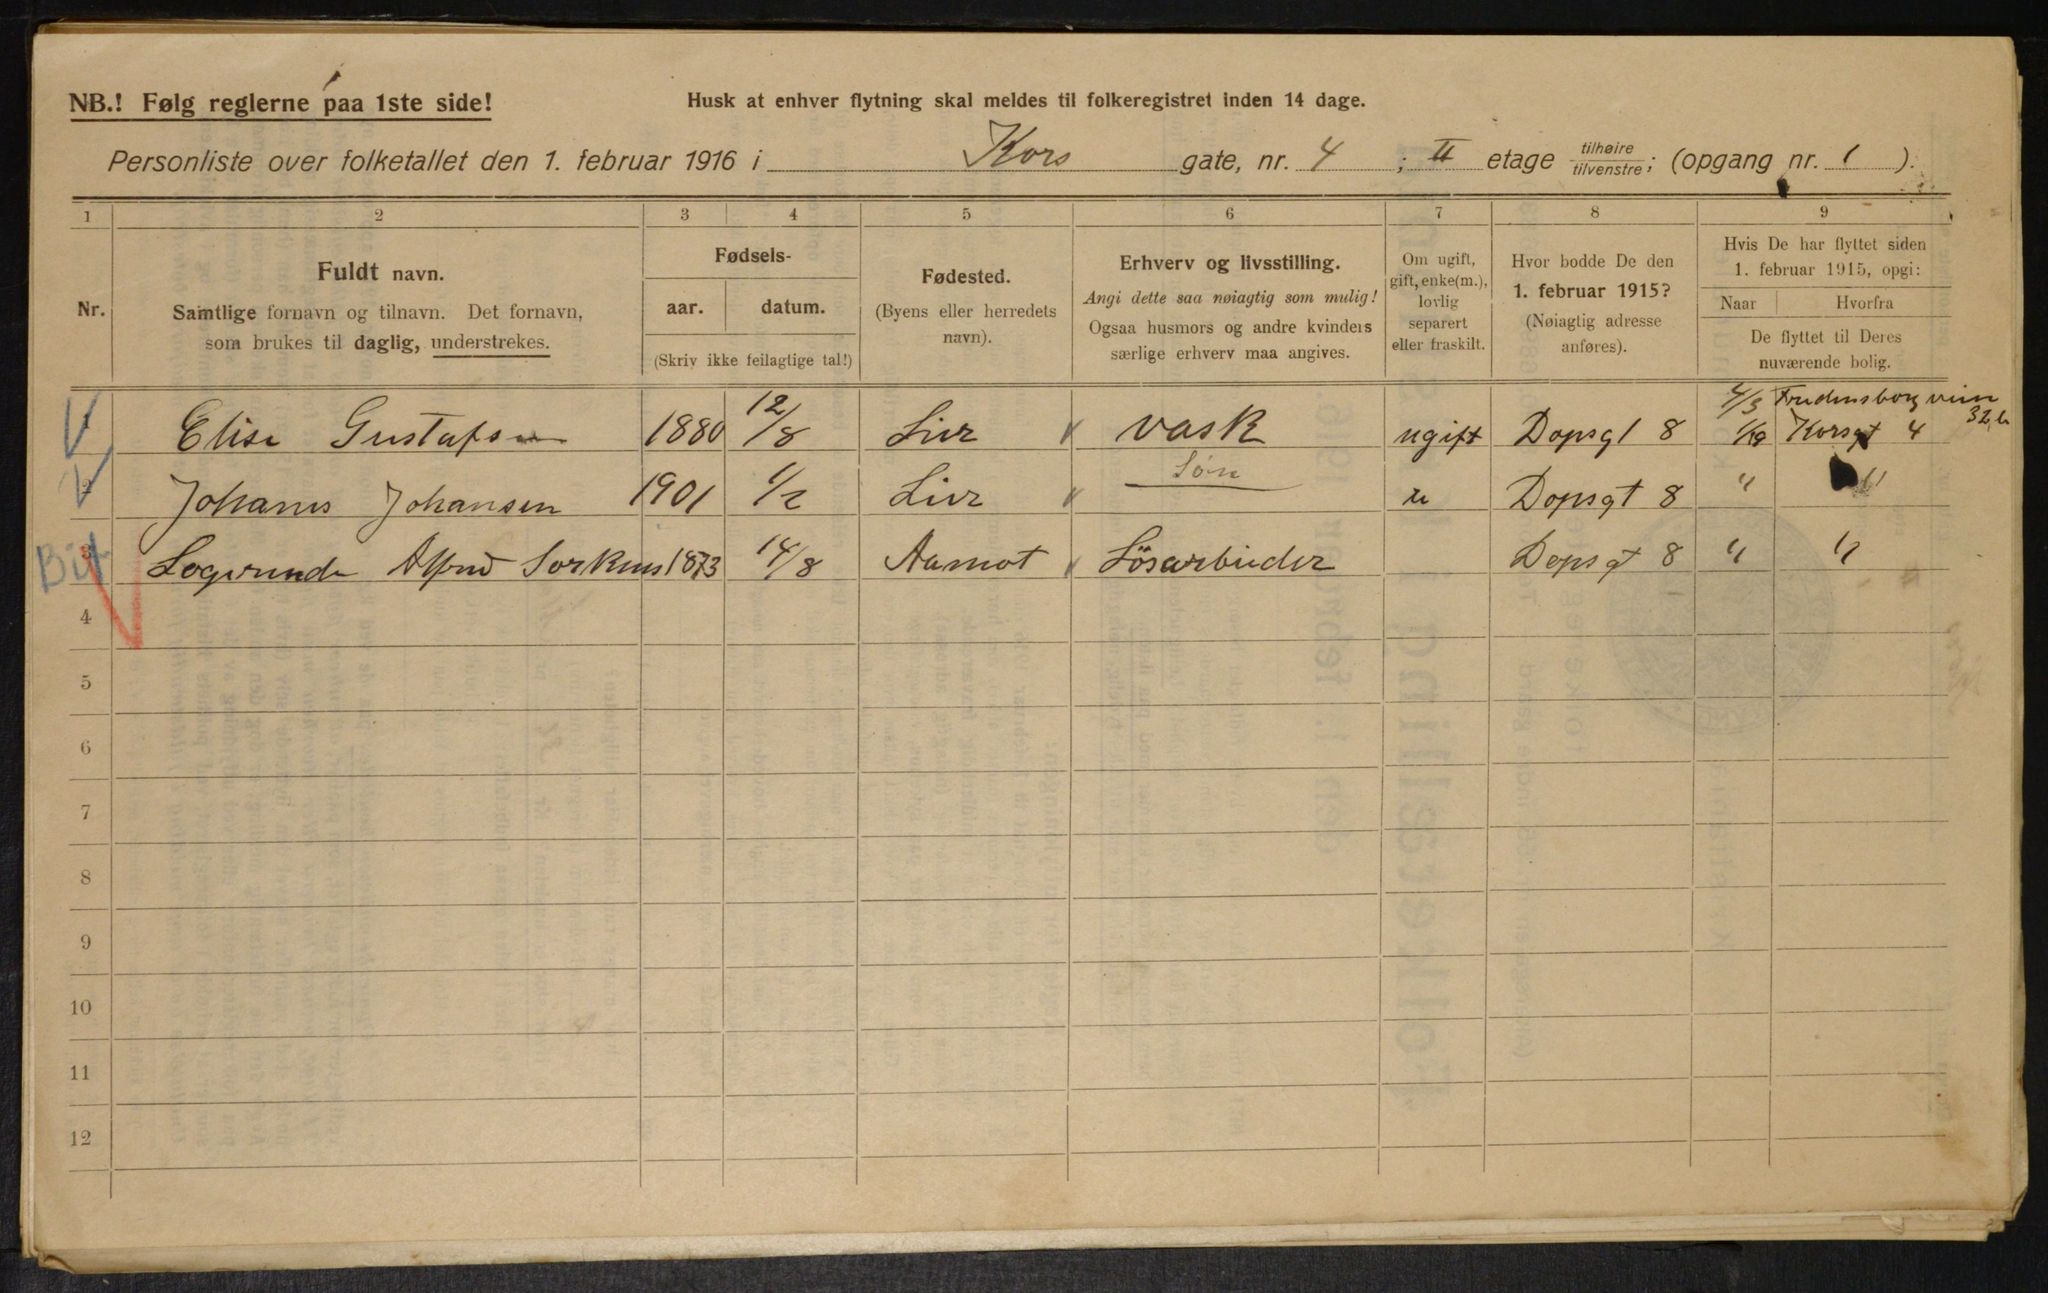 NB.! Følg reglerne paa 1ste side!
Husk at enhver flytning skal meldes til folkeregistret inden 14 dage.
Personliste over folketallet den 1. februar 1916 i Kors gate, nr. 4 ; II etage tilhøire/tilvenstre; (opgang nr. 1 ).
1 2 3 4 5 6 7 8 9
Nr.
Fuldt navn.
Samtlige fornavn og tilnavn. Det fornavn,
som brukes til daglig, understrekes.
Fødsels-
aar. datum.
(Skriv ikke feilagtige tal!)
Fødested.
(Byens eller herredets
navn).
Erhverv og livsstilling.
Angi dette saa nøiagtig som mulig!
Ogsaa husmors og andre kvinders
særlige erhverv maa angives.
Om ugift,
gift, enke(m.),
lovlig
separert
eller fraskilt.
Hvor bodde De den
1. februar 1915?
(Nøiagtig adresse
anføres).
Hvis De har flyttet siden
1. februar 1915, opgi:
Naar Hvorfra
De flyttet til Deres
nuværende bolig.
1 Elise Gustafsen 1880 12/8 Lier vask ugift Dopsgt 8 Korsgt 4
2 Johanes Johansen 1901 1/2 Lier Søn u Dopsgt 8 " "
3 Logerende Alfred 1873 14/8 Aamot Lösarbeider Dopsgt 8 " "
4
5
6
7
8
9
10
11
12